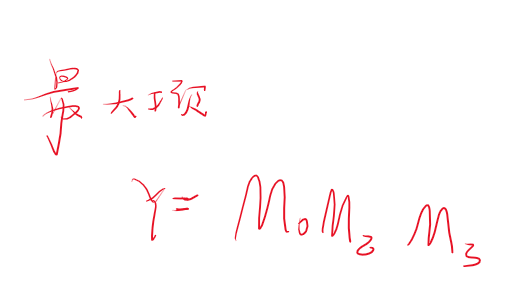 最大项
Y = M₀M₂ M₃